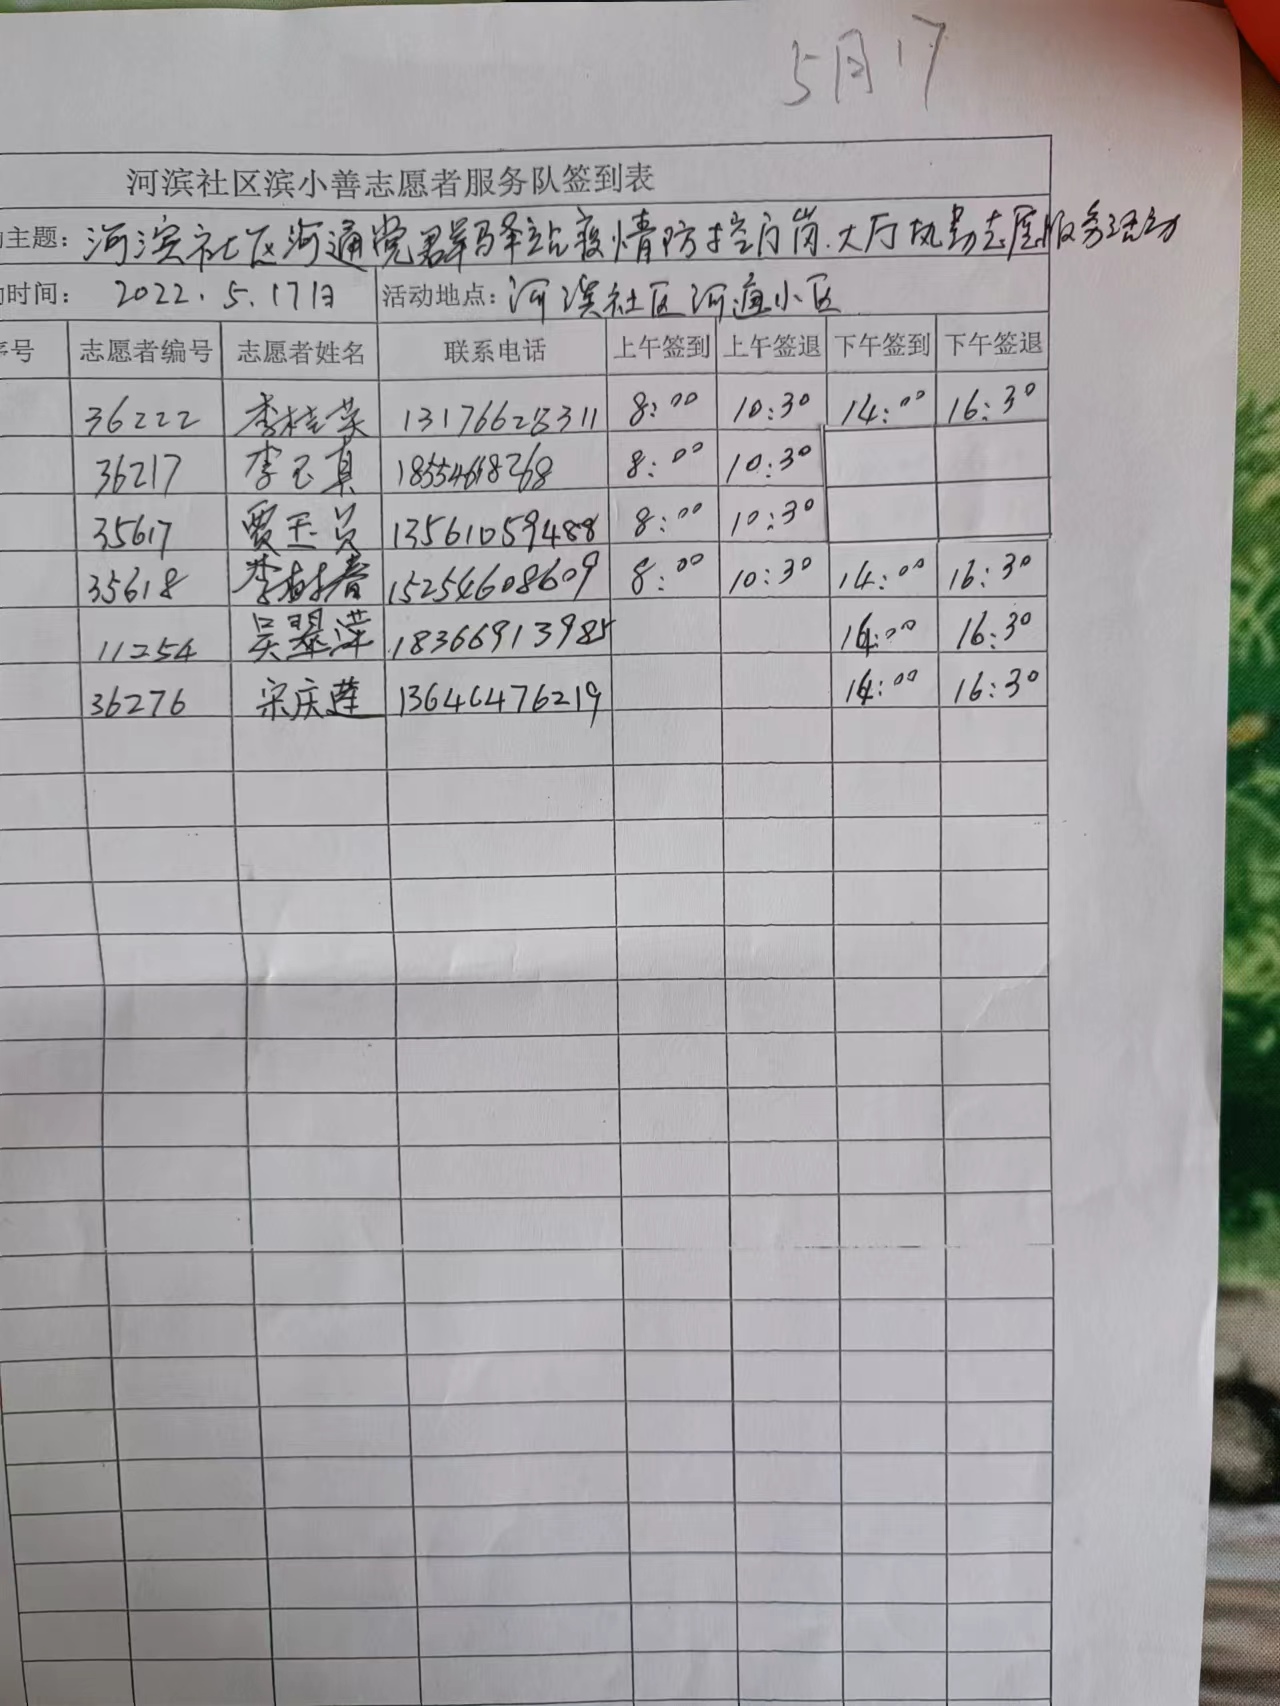 5月17
河滨社区滨小善志愿者服务队签到表
主题：河滨社区河通党群驿站疫情防控门岗.大厅执勤志愿服务活动
时间： 2022.5.17日 活动地点：河滨社区河通小区
序号 志愿者编号 志愿者姓名 联系电话 上午签到 上午签退 下午签到 下午签退
36222 李桂荣 13176628311 8:00 10:30 14:00 16:30
36217 李玉真 8:00 10:30
35617 贾玉员 13561059488 8:00 10:30
35618 李树春 15254608609 8:00 10:30 14:00 16:30
11254 吴翠萍 18366913985 14:00 16:30
36276 宋庆莲 13646476219 14:00 16:30